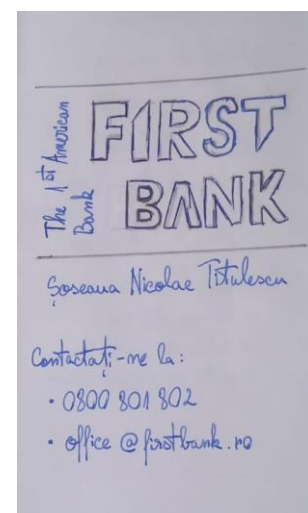 The 1st American
Bank
FIRST
BANK
Șoseaua Nicolae Titulescu
Contactați-ne la:
• 0800 801 802
• office@firstbank.ro